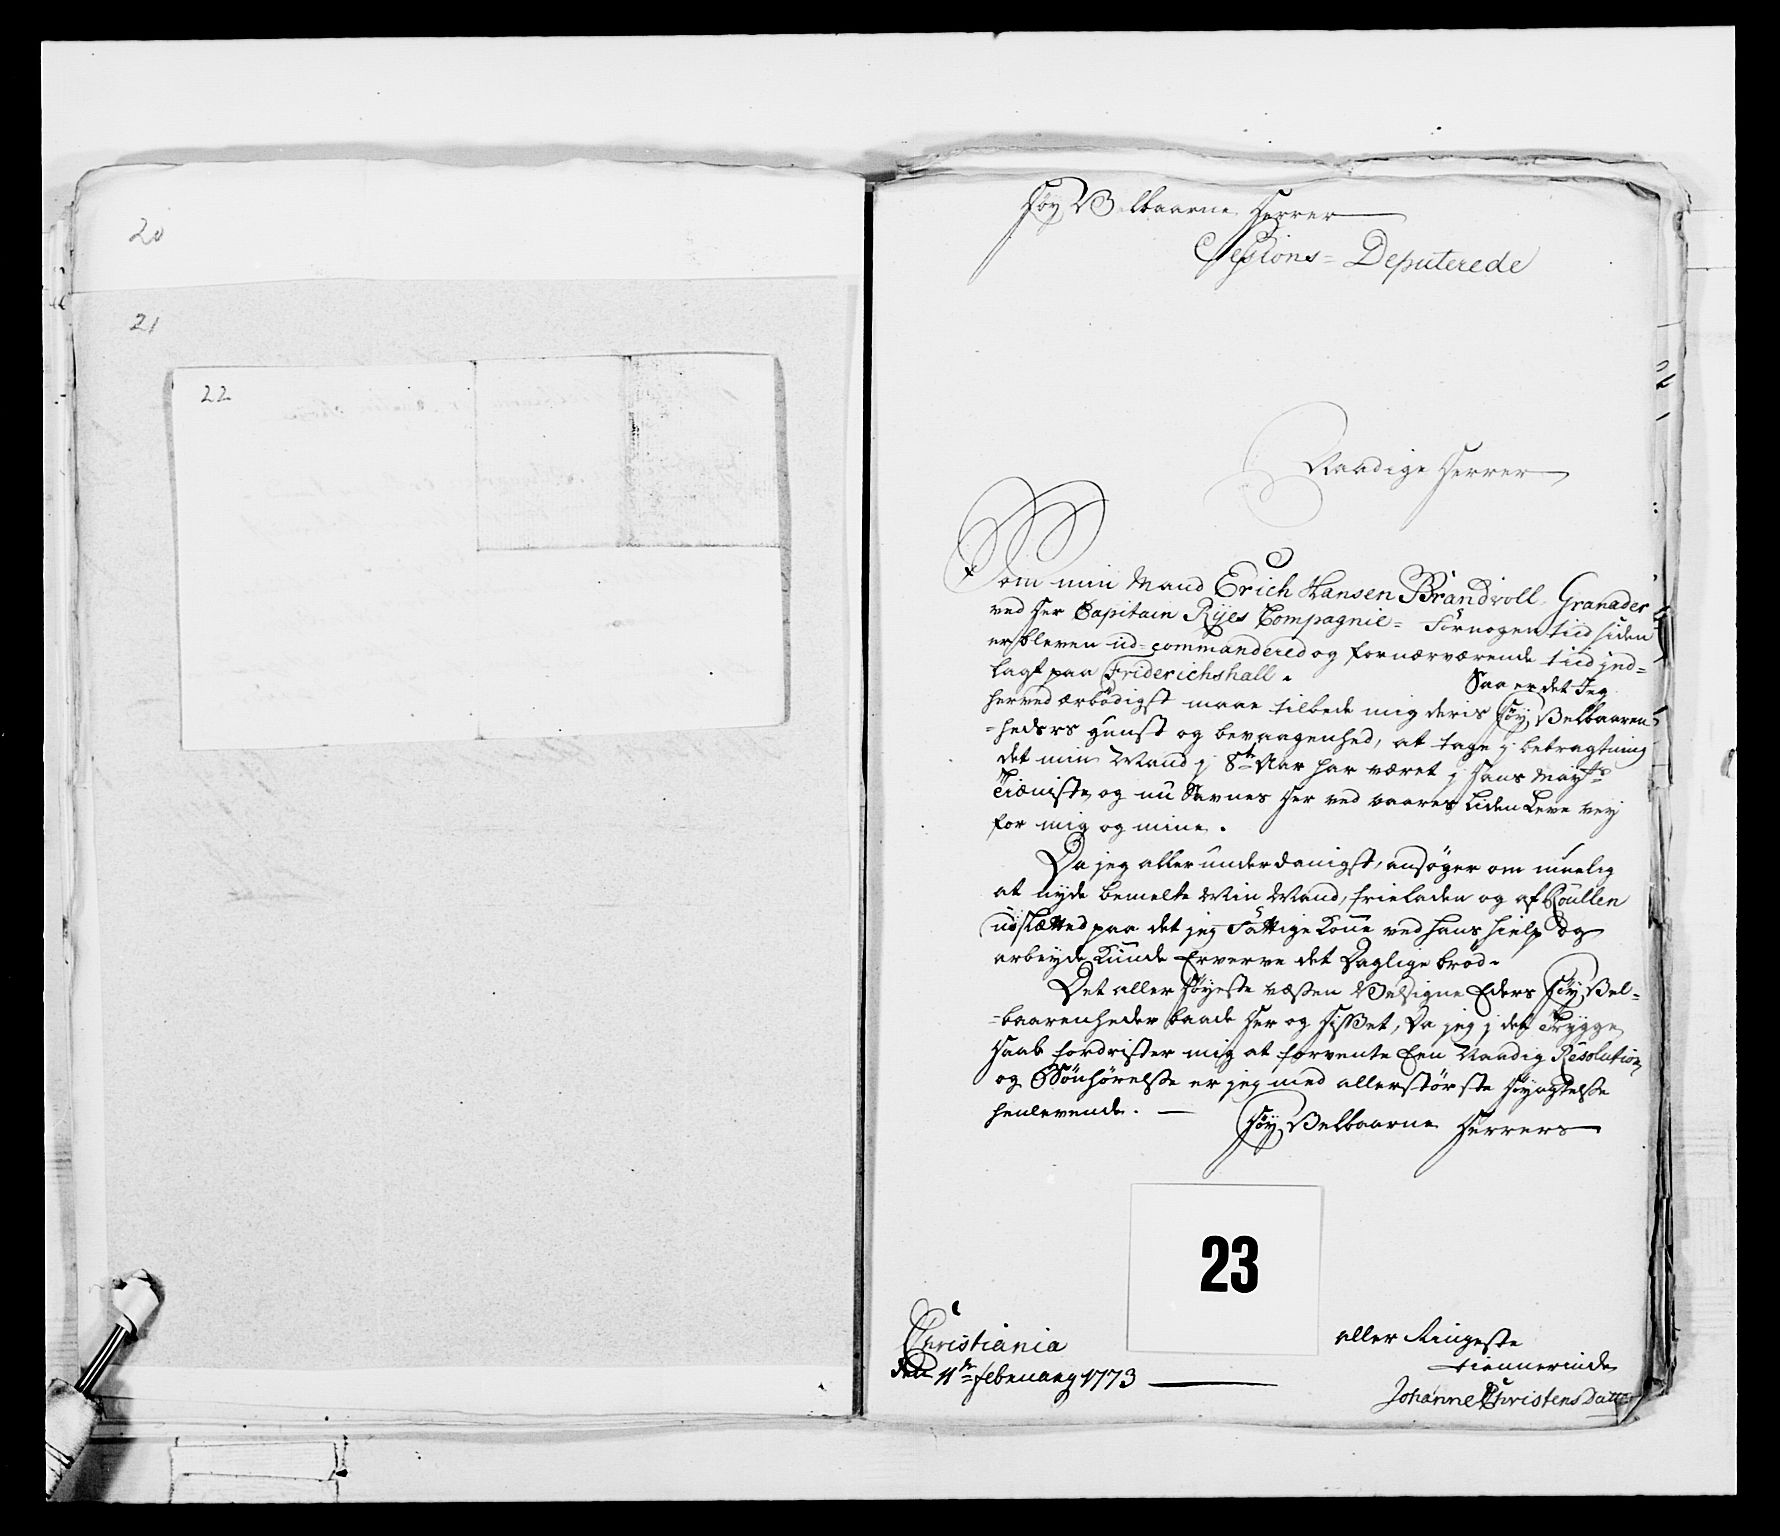 20
21
22
Høy Velbaarne Herrer
Sessions-Deputerede
Naadige Herrer
Som min Mand Erich Hansen Brandvoll Granader
ved Her Capitain Ryes Compagnie= For nogen tiid siden
er bleven ud=commandered og fornærværende tiid ind=
lagt paa Friderichshall. Saa er det Jeg
herved ærbödigst maae tilbede mig deris Høy Velbaaren
=heders gunst og bevaagenhed, at tage j betragtning
det min Mand j 8te Aar har været j Hans Mayts
Tiæniste og nu Savnes her ved vaares liden Leve vey
for mig og mine.
Da jeg aller underdanigst, ansöger om muelig
at nyde bemelte Min Mand, frieladen og af Roullen
udslætted paa det jeg Fattige Kone ved hans hielp og
arbeyde Kunde Erverve det Daglige bröd.
Det aller høyeste væsen Velsigne Eders Høy Vel=
=baarenheder baade her og hisset, Da jeg j det Trygge
Haab fordrister mig at forvente Een Naadig Resolution
og Bönhörelse er jeg med allerstörste høyagtelse
henlevende. Høy Velbaarne Herrers
23
Christiania
den 11te February 1773
aller Ringeste
tiennerinde
Johanne Christens Datter